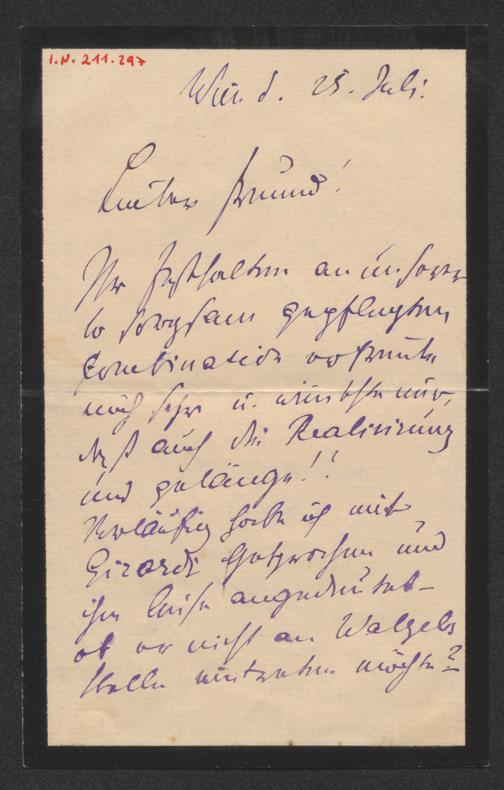 I.N. 211.297
Wien d. 25. Juli.
Liebster Freund!
Ihr Festhalten an unserer
so sorgsam gepflegten
Combination erfreute
mich sehr u. wünschte nur,
daß auch die Realisirung
uns gelänge!!
Vorläufig habe ich mit
Girardi gesprochen und
ihm leise angedeutet –
ob er nicht an Walzels
Stelle eintreten möchte?